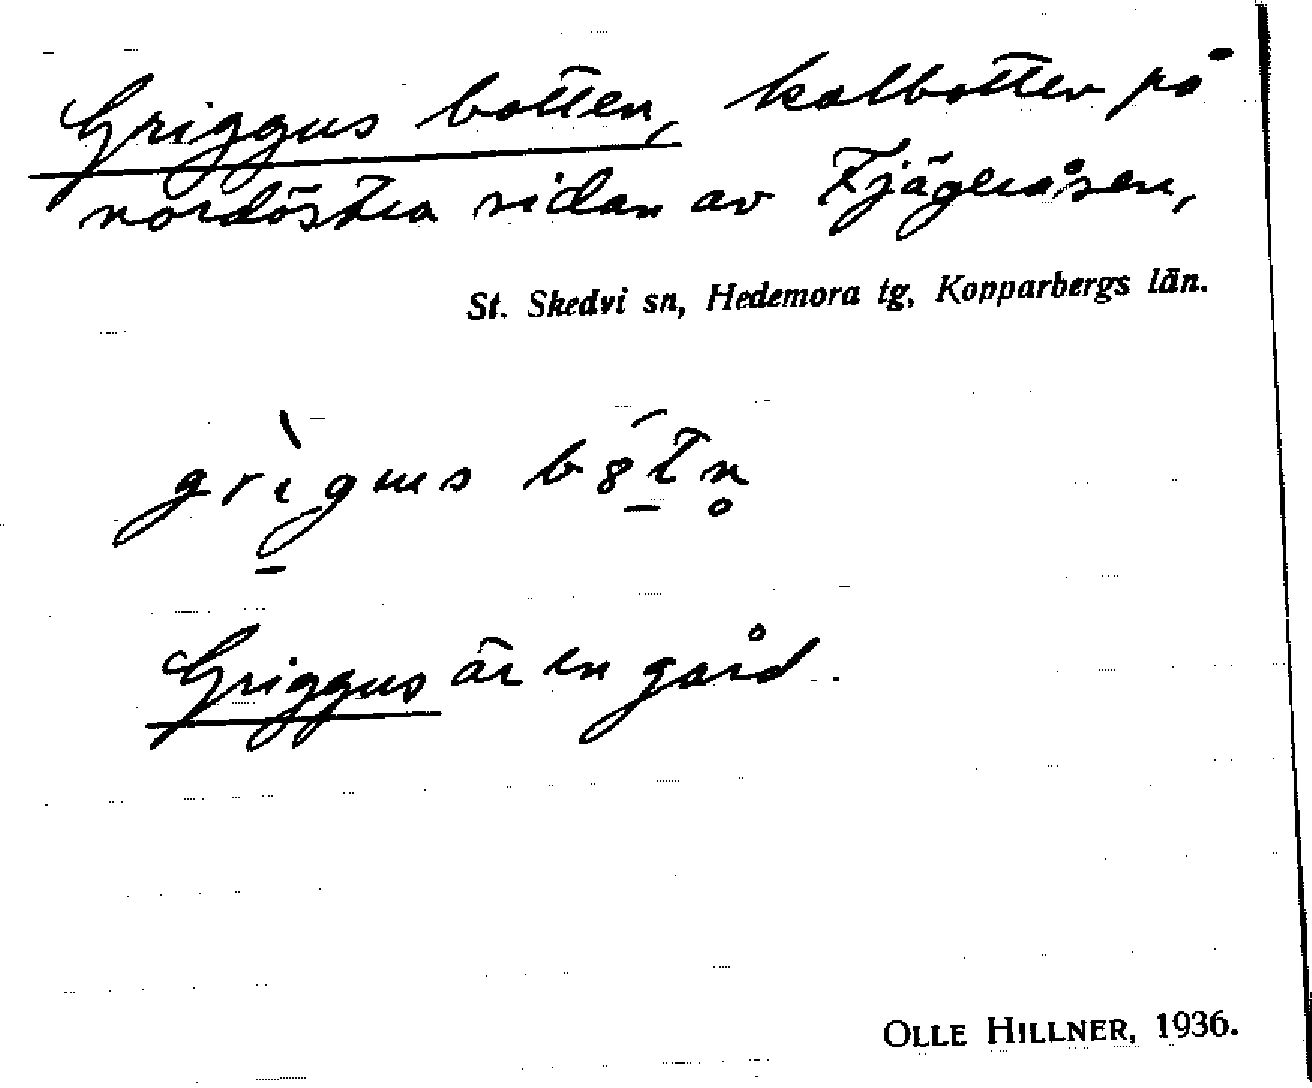 Griggus botten, kolbotten på
nordöstra sidan av Fjägeråsen,
St. Skedvi sn, Hedemora tg, Kopparbergs län.
Griggus är en gård.
OLLE HILLNER, 1936.